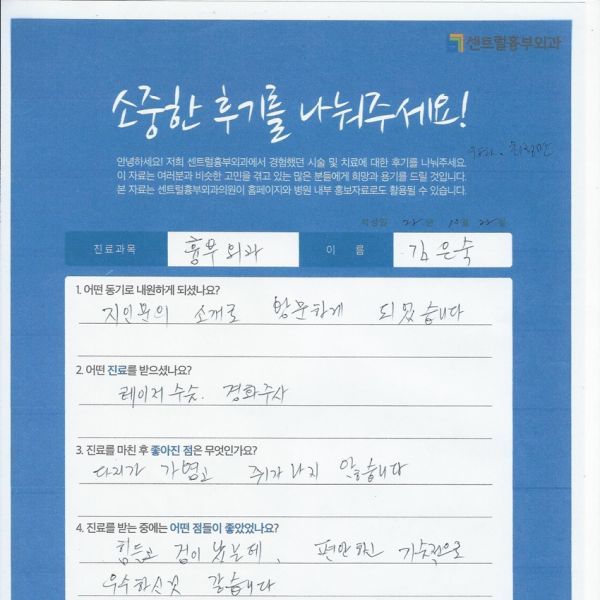 센트럴흉부외과
소중한 후기를 나눠주세요!
안녕하세요! 저희 센트럴흉부외과에서 경험했던 시술 및 치료에 대한 후기를 나눠주세요.
이 자료는 여러분과 비슷한 고민을 겪고 있는 많은 분들에게 희망과 용기를 드릴 것입니다.
본 자료는 센트럴흉부외과의원이 홈페이지와 병원 내부 홍보자료로도 활용될 수 있습니다.
작성일 22년 10월 22일
진료과목 흉부외과 이 름 김은숙
1. 어떤 동기로 내원하게 되셨나요?
지인분의 소개로 방문하게 되었습니다
2. 어떤 진료를 받으셨나요?
레이저수술. 경화주사
3. 진료를 마친 후 좋아진 점은 무엇인가요?
다리가 가볍고 쥐가나지 않습니다
4. 진료를 받는 중에는 어떤 점들이 좋았었나요?
힘들고 겁이 났는데, 편안하신 기술적으로
우수하신것 같습니다